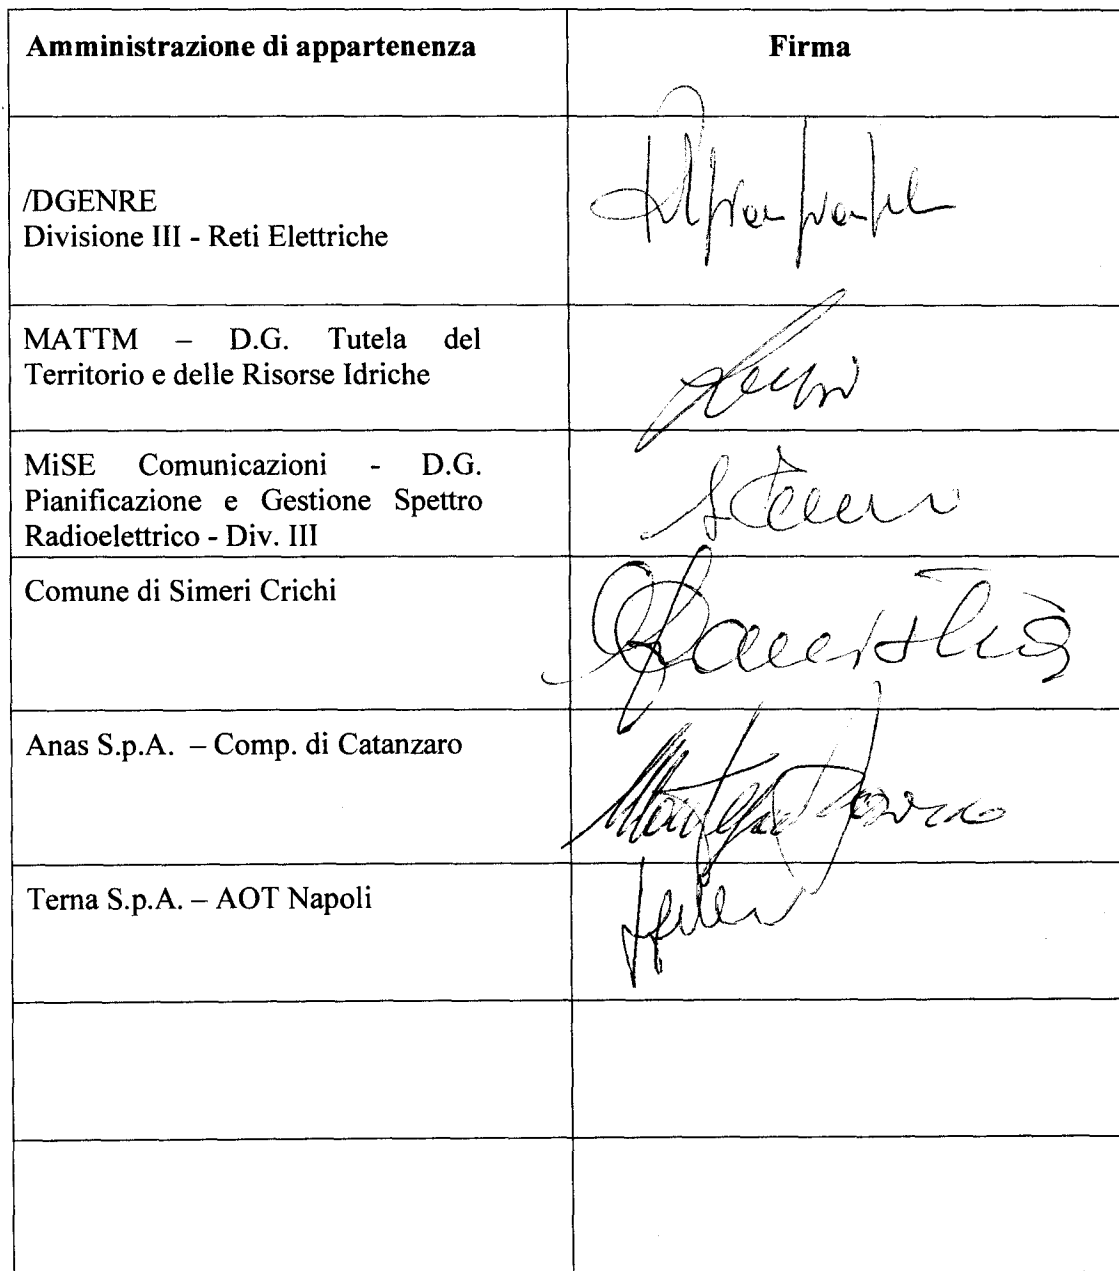 Amministrazione di appartenenza
Firma
/DGENRE
Divisione III - Reti Elettriche
MATTM – D.G. Tutela del
Territorio e delle Risorse Idriche
MiSE Comunicazioni - D.G.
Pianificazione e Gestione Spettro
Radioelettrico - Div. III
Comune di Simeri Crichi
Anas S.p.A. – Comp. di Catanzaro
Terna S.p.A. – AOT Napoli